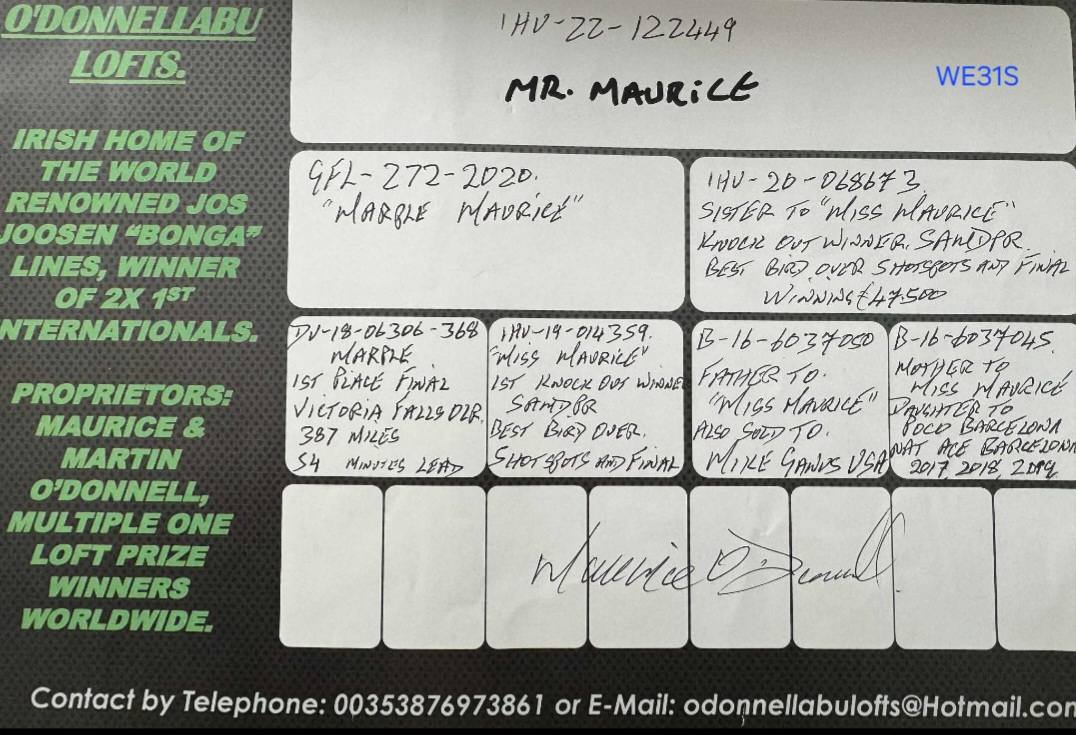 O'DONNELLABU
LOFTS.
IRISH HOME OF
THE WORLD
RENOWNED JOS
JOOSEN "BONGA"
LINES, WINNER
OF 2X 1ST
NTERNATIONALS.
PROPRIETORS:
MAURICE &
MARTIN
O'DONNELL,
MULTIPLE ONE
LOFT PRIZE
WINNERS
WORLDWIDE.
IHU-22-122449
MR. MAURICE
WE31S
GFL-272-2020.
"MARBLE MAURICE"
IHU-20-068673
SISTER TO "MISS MAURICE"
KNOCK OUT WINNER, SAMDPR
BEST BIRD OVER SHOTSPOTS AND FINAL
WINNING €47.500
DV-18-06306-368
MARBLE
1ST PLACE FINAL
VICTORIA FALLS OLR.
387 MILES
54 MINUTES LEAD
IHU-19-014359.
"MISS MAURICE"
1ST KNOCK OUT WINNER
SAMDPR
BEST BIRD OVER.
SHOTSPOTS AND FINAL
B-16-6037050
FATHER TO.
"MISS MAURICE"
ALSO SOLD TO.
MIKE GANUS USA
B-16-6037045.
MOTHER TO
MISS MAURICE
DAUGHTER TO
POCO BARCELONA
NAT ACE BARCELONA
2017, 2018, 2019.
Maurice O'Donnell
Contact by Telephone: 00353876973861 or E-Mail: odonnellabulofts@Hotmail.com